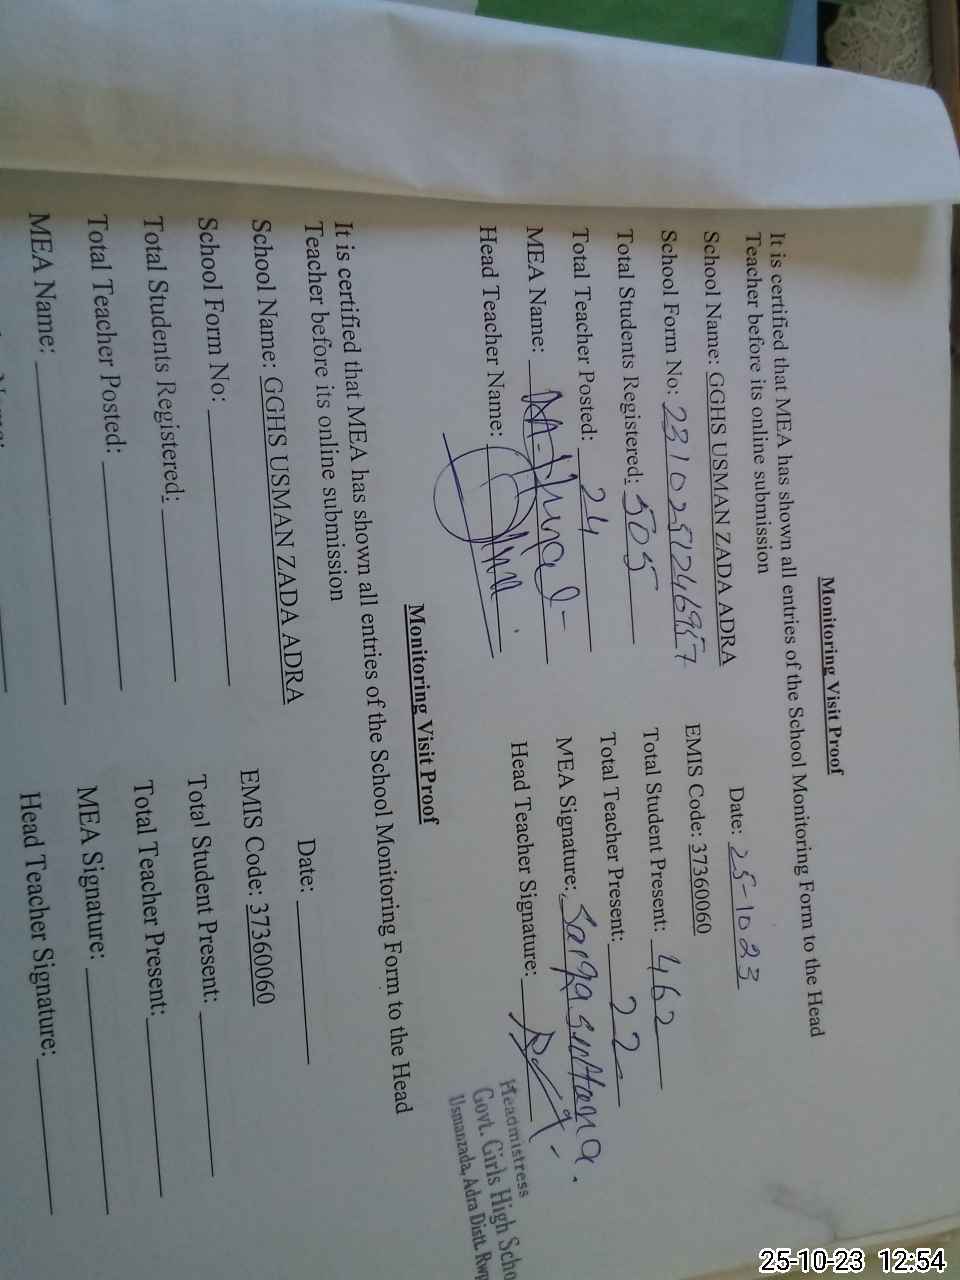 Monitoring Visit Proof
It is certified that MEA has shown all entries of the School Monitoring Form to the Head
Teacher before its online submission
Date: 25-10-23
School Name: GGHS USMAN ZADA ADRA
EMIS Code: 37360060
School Form No:
Total Student Present: 462
Total Students Registered: 505
Total Teacher Present: 22
Total Teacher Posted: 24
MEA Signature:
MEA Name:
Head Teacher Signature:
Head Teacher Name:
Headmistress
Govt. Girls High
Usmanzada, Adra Distt.
Monitoring Visit Proof
It is certified that MEA has shown all entries of the School Monitoring Form to the Head
Teacher before its online submission
Date:
School Name: GGHS USMAN ZADA ADRA
EMIS Code: 37360060
School Form No:
Total Student Present:
Total Students Registered:
Total Teacher Present:
Total Teacher Posted:
MEA Signature:
MEA Name:
Head Teacher Signature:
25-10-23 12:54